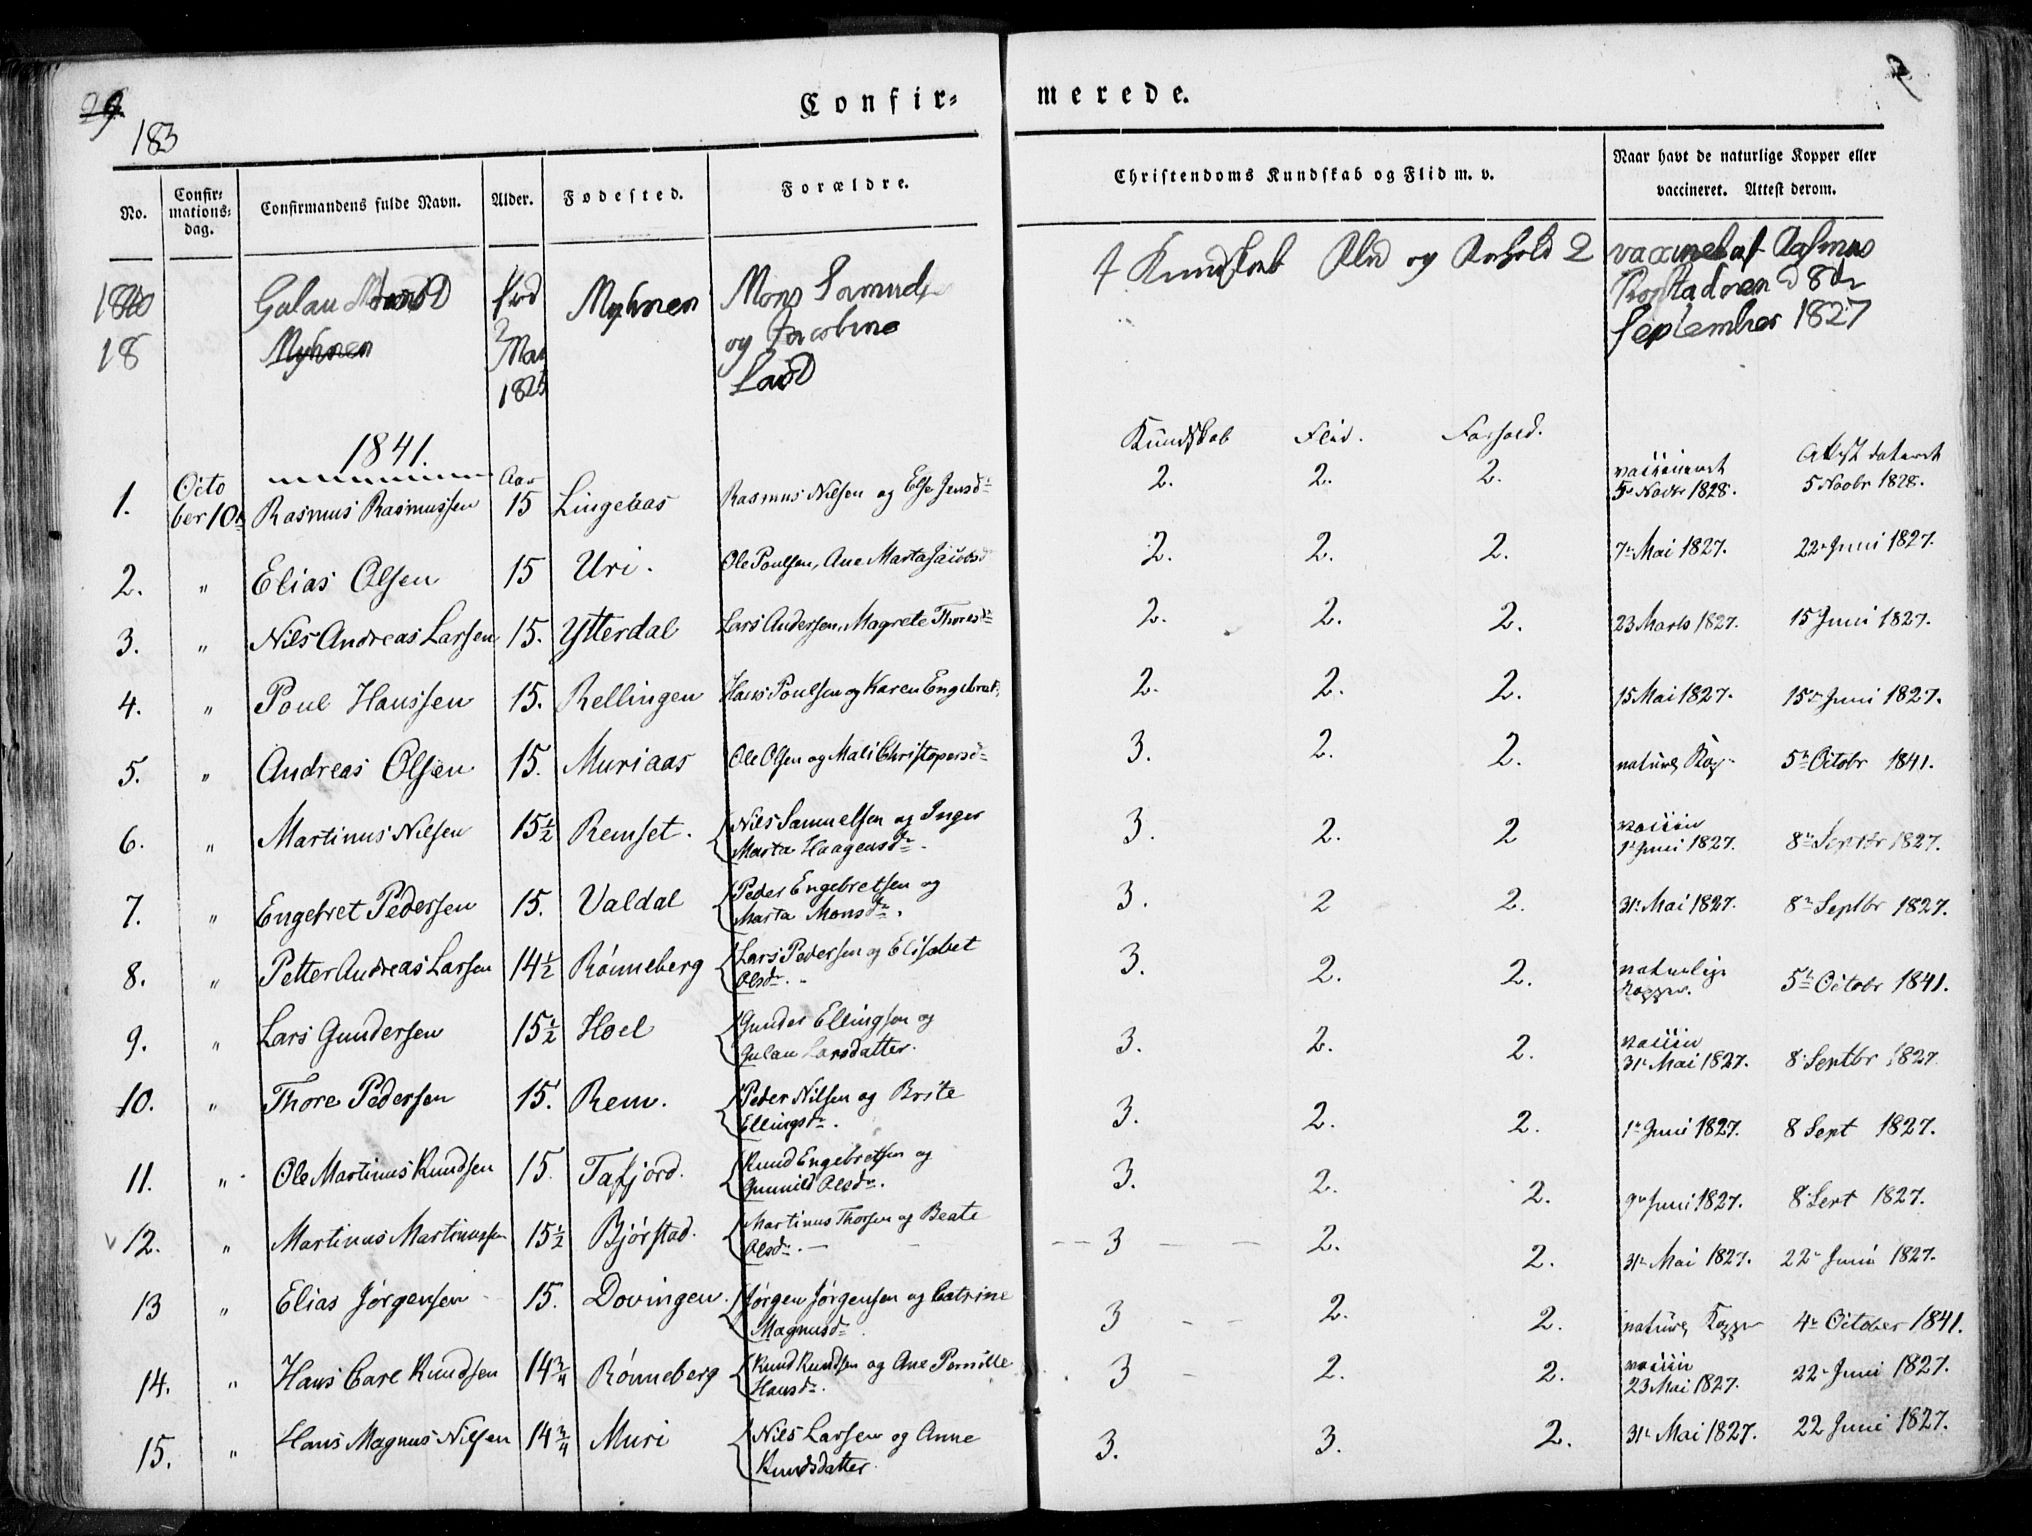 29
183
Confir= merede.
No.
Confir=
mations=
dag.
Confirmandens fulde Navn.
Alder.
Fødested.
Forældre.
Christendoms Kundskab og Flid m. v.
Naar havt de naturlige Kopper eller
vaccineret. Attest derom.
1840 Gulau Monsd fød Myhren Mons Samuels 4 Kundskab Flid og Forhold 2 vaccinet af Rasmus
18 Myhren 2 Mai 1825 og Jacobine Larsd 8de
September 1827
1841.
Aar
Kundskab Flid. Forhold. Attest dateret
1. Octo ber 10 Rasmus Rasmussen 15 Lingeaas Rasmus Nilsen og Else Jensd 2. 2. 2. vaccineret 5 Novbr 1828. 5 Novbr 1828.
2. " Elias Olsen 15 Uri. Ole Poulsen, Ane Marta Jacobsd 2. 2. 2. 7 Mai 1827. 22 Juni 1827.
3. " Nils Andreas Larsen 15. Ytterdal Lars Andersen, Magrete Thoresd 2. 2. 2. 23 Marts 1827. 15 Juni 1827.
4. " Poul Hanssen 15. Rellingen Hans Poulsen og Karen Engebret 2. 2. 2. 15 Mai 1827. 15 Juni 1827.
5. " Andreas Olsen 15. Muriaas Ole Olsen og Mali Christopersd 3. 2. 2. naturl Kop 5 Octobr 1841.
6. " Martinus Nilsen 15½ Remset. Nils Samuelsen og Inger Marta Haagensdr. 3. 2. 2 vaccin 1 Juni 1827. 8 Septbr 1827.
7. " Engebret Pedersen 15. Valdal Peder Engebretsen og Marta Monsdr. 3. 2 2. 31 Mai 1827. 8 Septbr 1827.
8. " Petter Andreas Larsen 14½ Rönneberg Lars Pedersen og Elisabet Olsdr. 3. 2. 2. naturlige Kopper. 5 Octobr 1841.
9. " Lars Gundersen 15½ Hoel Gunder Ellingsen og Gulau Larsdatter. 3. 2. 2. vaccin 31 Mai 1827. 8 Septbr 1827
10. " Thore Pedersen 15. Rem. Peder Nilsen og Brite Ellingsdr. 3. 2. 2. 1 Juni 1827. 8 Sept 1827.
11. " Ole Martinus Knudsen 15. Tafjord. Knud Engebretsen og Gunnild Olsdr. 3. 2. 2. 9 Juni 1827. 8 Sept 1827.
12. " Martinus Martinussen 15½ Bjørstad. Martinus Thorsen og Beate Olsdr. 3 2. 2. 31 Mai 1827. 22 Juni 1827.
13 " Elias Jørgensen 15. Dovingen. Jørgen Jørgensen og Catrine Magnusdr 3 2. 2. naturl Kopper 4 October 1841.
14. " Hans Carl Knudsen 14¾ Rönneberg Knud Knudsen og Ane Pernille Hansdr. 3 2. 2. vaccin 23 Mai 1827. 22 Juni 1827.
15. " Hans Magnus Nilsen 14¾ Muri Nils Larsen og Anne Knudsdatter. 3. 3. 2. 31 Mai 1827. 22 Juni 1827.